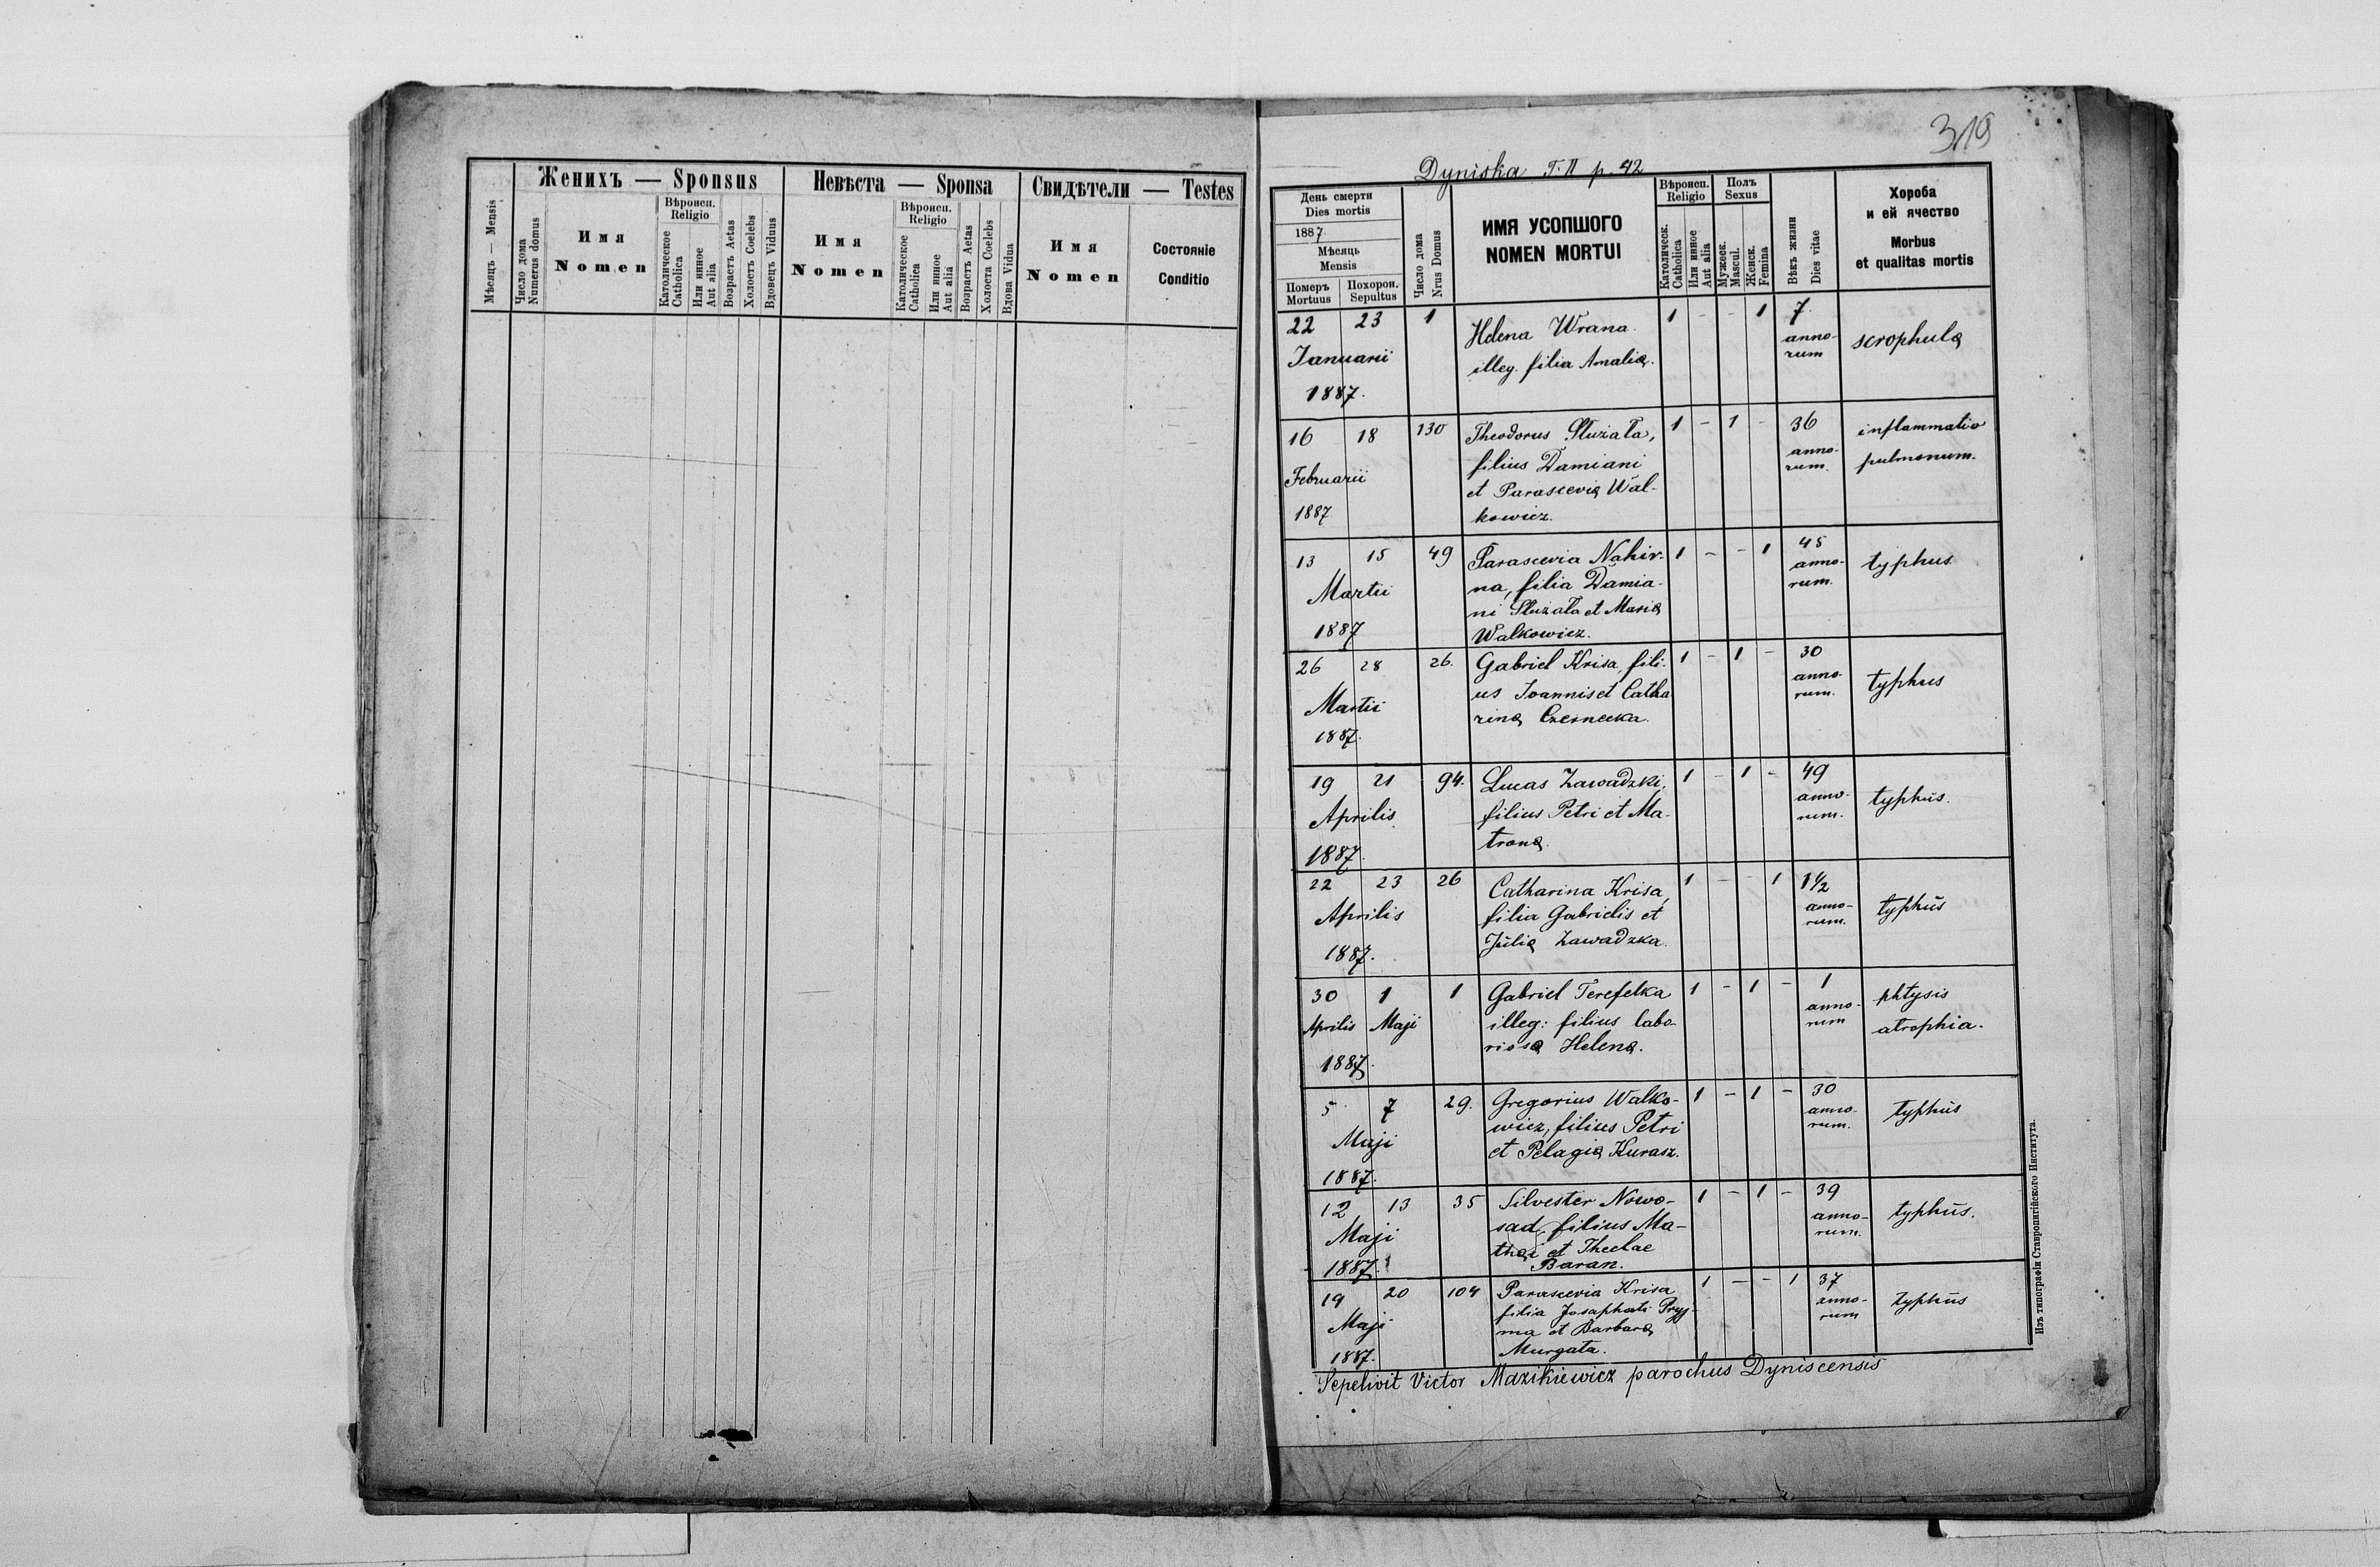 Женихъ — Sponsus
Невѣста — Sponsa
Свидѣтели — Testes
Мѣсяцъ — Mensis
Число дома
Numerus domus
Имя
Nomen
Вѣроисп.
Religio
Католическое
Catholica
Или инное
Aut alia
Возрастъ Aetas
Холостъ Coelebs
Вдовецъ Viduus
Имя
Nomen
Вѣроисп.
Religio
Католическое
Catholica
Или инное
Aut alia
Возрастъ Aetas
Холоста Coelebs
Вдова Vidua
Имя
Nomen
Состояніе
Conditio
319
Dyniska T. II p. 42
День смерти
Dies mortis
1887
Мѣсяць
Mensis
Померъ
Mortuus
Похорон.
Sepultus
Число дома
Nrus Domus
ИМЯ УСОПШОГО
NOMEN MORTUI
Вѣроисп.
Religio
Католическ.
Catholica
Или инное
Aut alia
Полъ
Sexus
Мужеск.
Mascul.
Женск.
Femina
Вѣкъ жизни
Dies vitae
Хороба
и ей ячество
Morbus
et qualitas mortis
22 23 1 Helena Wrana 1 - - 1 7
Januarii illeg. filia Amaliæ. annorum scrophulæ
1887.
16 18 130 Theodorus Służała, 1 - 1 - 36 inflammatio
filius Damiani anno- pulmonum.
Februarii et Parasceviæ Wal- rum.
1887 kowicz.
13 15 49 Parascevia Nahir- 1 - - 1 45
Martii na, filia Damia- anno- typhus
ni Służała et Mariæ rum.
1887 Walkowicz.
26 28 26. Gabriel Krisa, fili- 1 - 1 - 30
Martii us Joannis et Catha anno- typhus
rinæ Czernecka. rum.
1887.
19 21 94. Lucas Zawadzki, 1 - 1 - 49
Aprilis filius Petri et Ma- anno- typhus.
1887. tronæ. rum.
22 23 26 Catharina Krisa, 1 - - 1 1½
Aprilis filia Gabrielis et anno- typhus
1887. Juliæ Zawadzka. rum.
30 1 1 Gabriel Terefelka 1 - 1 - 1 phtysis
Aprilis Maji illeg: filius labo- anno- atrophia.
1887. riosæ Helenæ. rum
5 7 29. Gregorius Walko- 1 - 1 - 30
Maji wicz, filius Petri anno- typhus
1887. et Pelagiæ Kurasz. rum.
12 13 35 Silvester Nowo- 1 - 1 - 39
Maji sad, filius Ma- anno- typhus.
thæi et Theclae rum.
1887. Baran.
19 20 104 Parascevia Krisa 1 - - 1 37
Maji filia Josaphati Pryj- anno- typhus
ma et Barbaræ rum
1887. Murgała.
Sepelivit Victor Mazikiewicz parochus Dyniscensis
Изъ типографіи Ставропигійского Института.